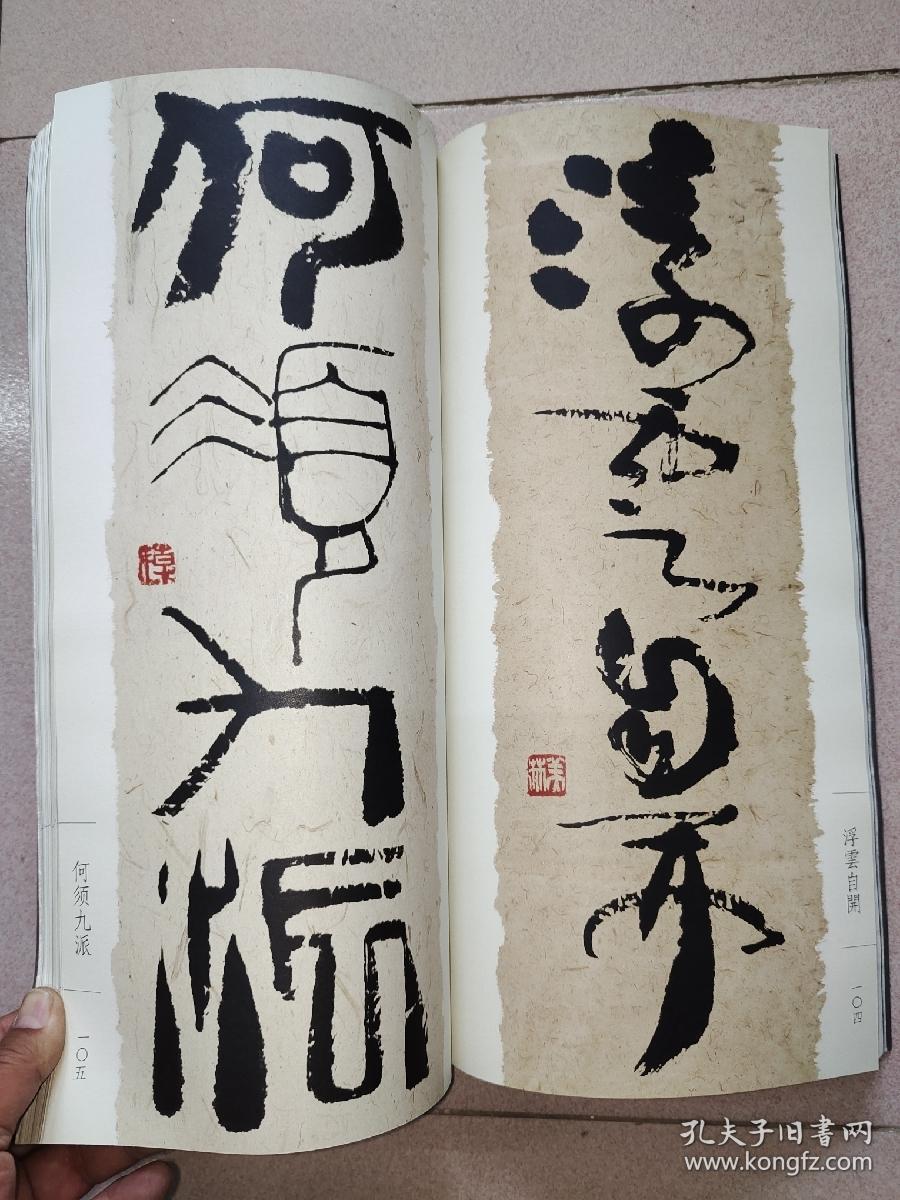 浮雲自開
浮雲自開
一〇四
何須九派
何须九派
一〇五
孔夫子旧書网
www.kongfz.com